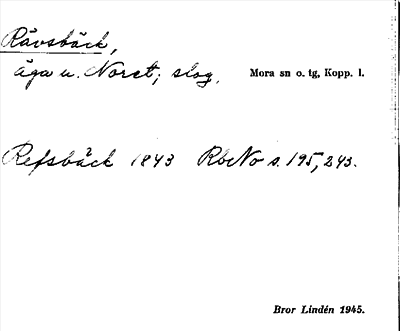 Rävsbäck,
äga u. Noret; slog. Mora sn o. tg, Kopp. l.
Refsbäck 1843 RbNo s. 195, 243.
Bror Lindén 1945.